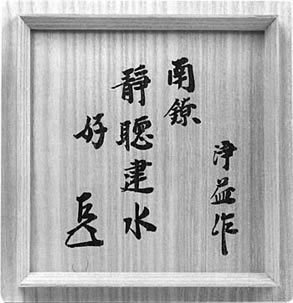 浄益作
南鐐
靜聴建水
好